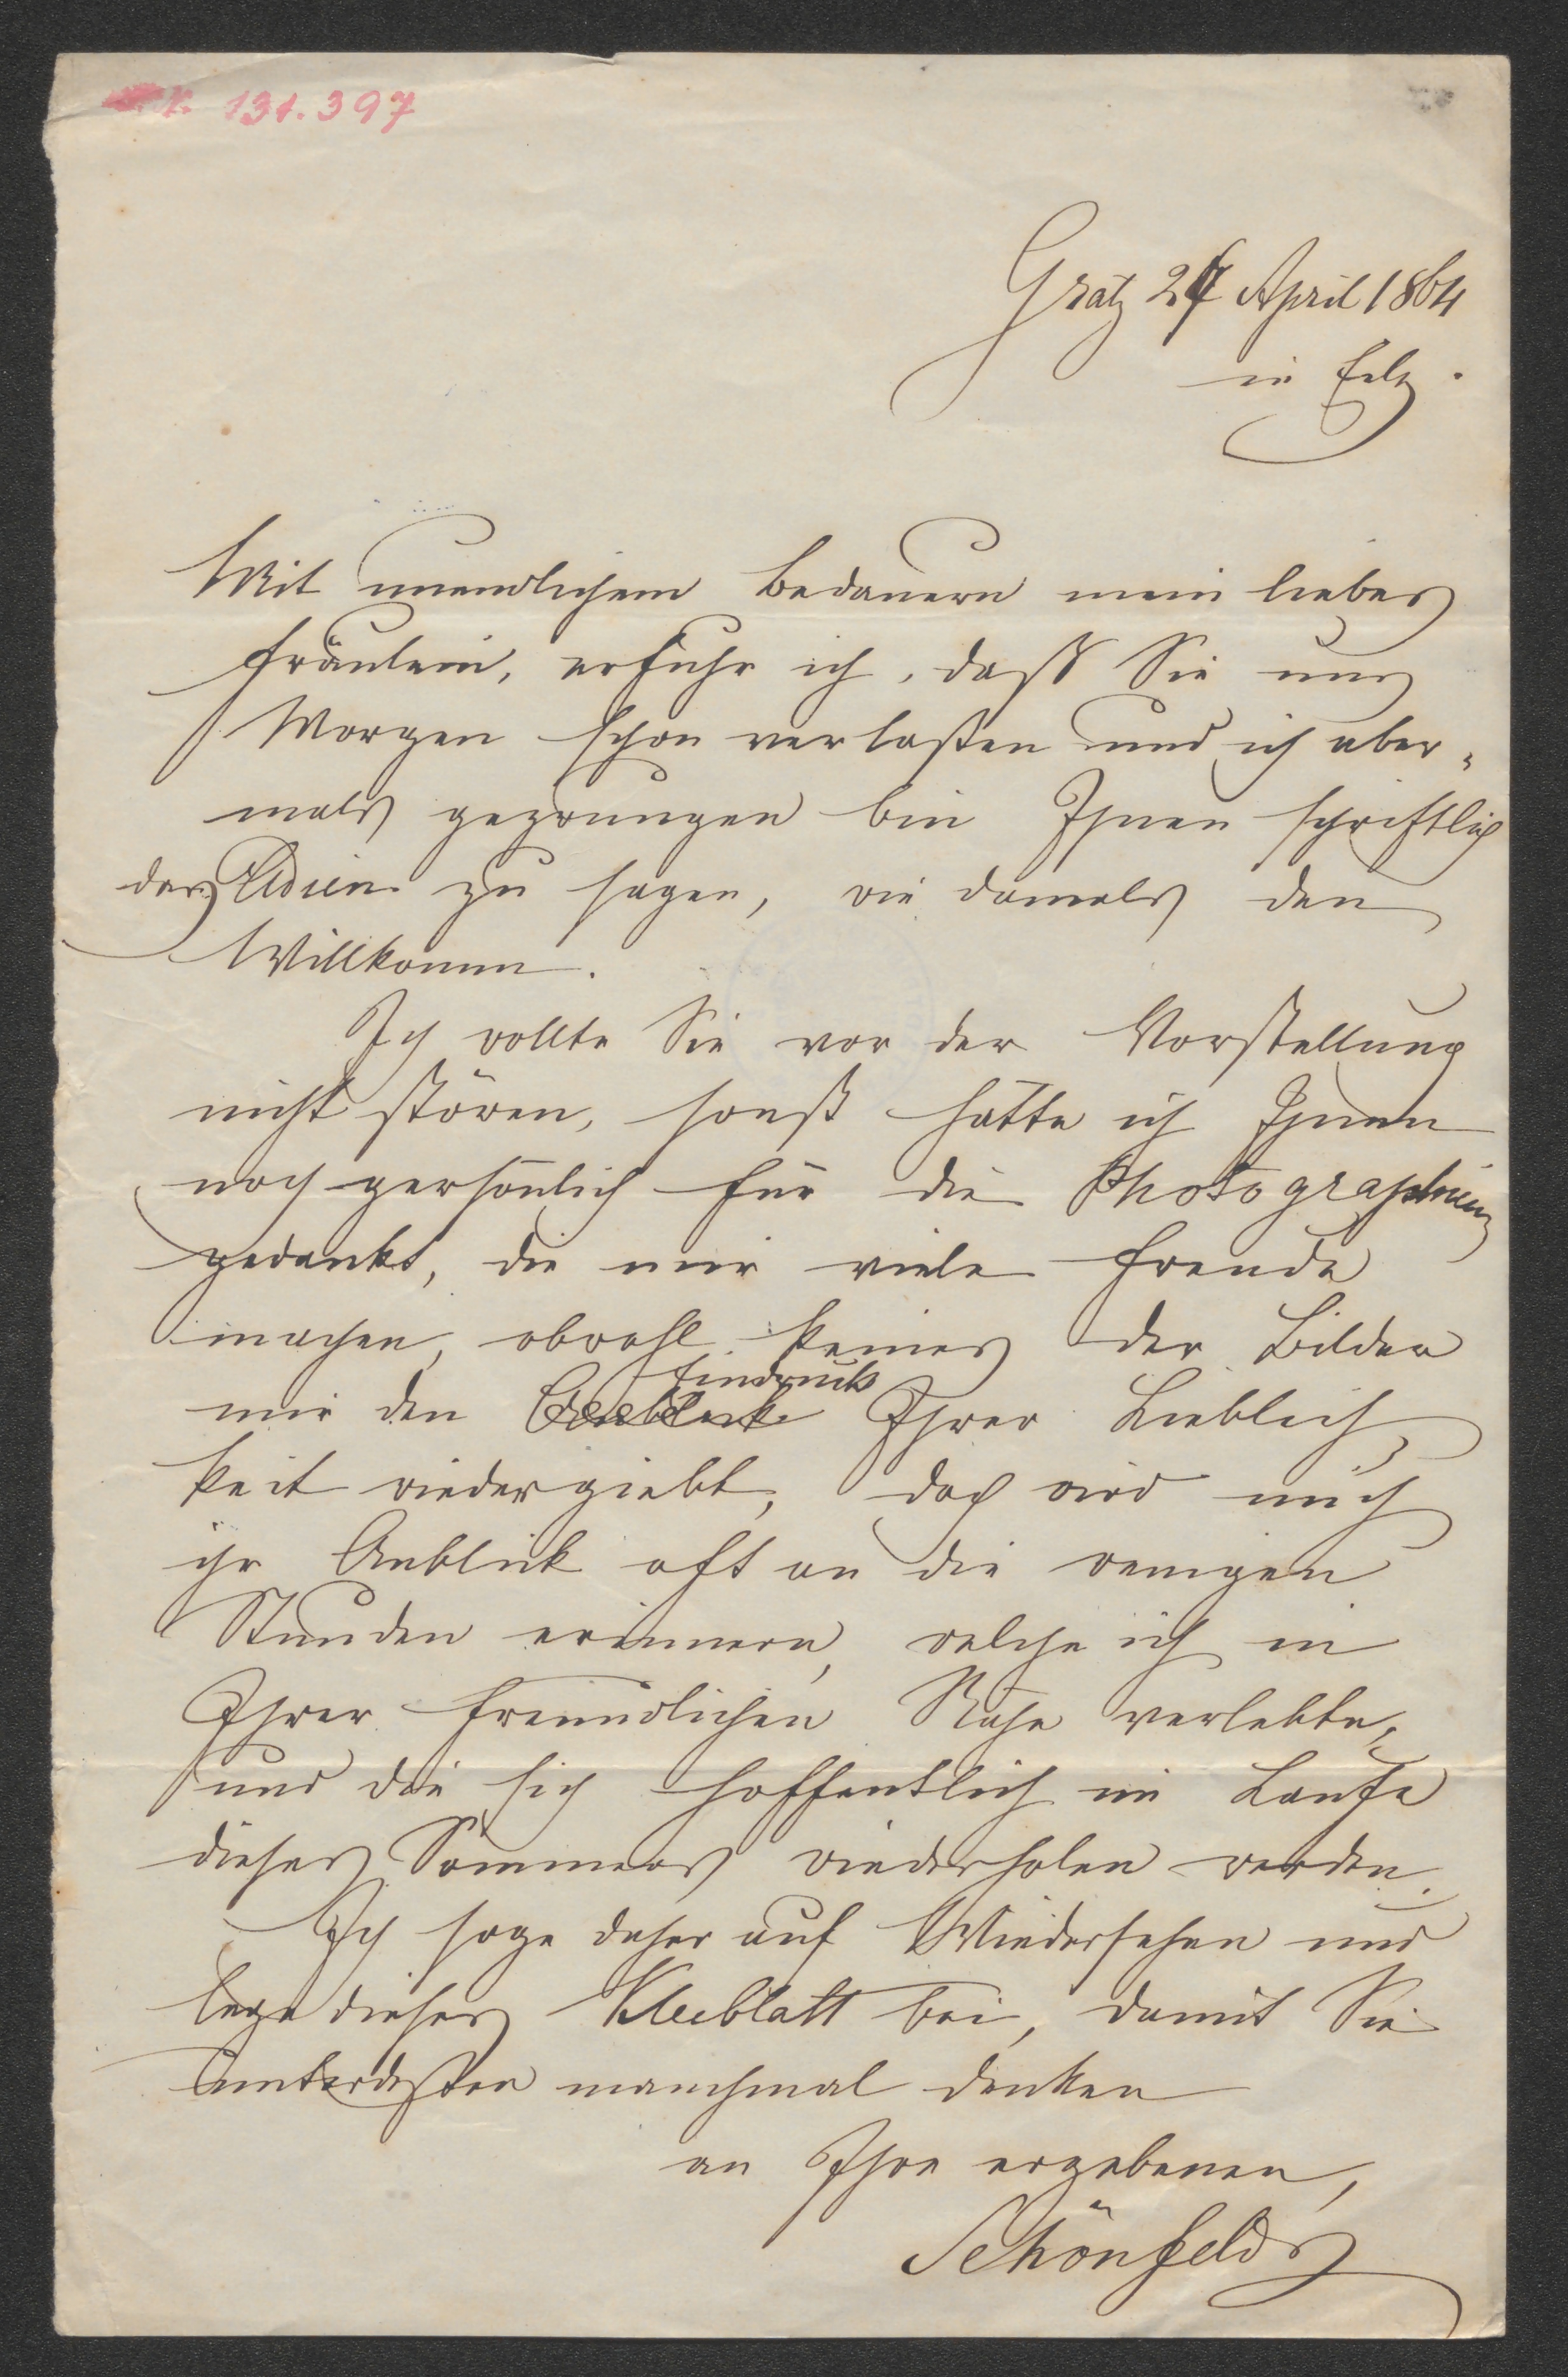 131.397
Gratz 27 April 1864
in Eile.
Mit unendlichem Bedauern mein liebes
Fräulein, erfuhr ich, daß Sie uns
Morgen schon verlaßen und ich aber-
mals gezwungen bin Ihnen schriftlich
das Adieu zu sagen, wie damals den
Willkomm.
Ich wollte Sie vor der Vorstellung
nicht stören, sonst hätte ich Ihnen
noch persönlich für die Photographien
gedankt, die mir viele Freude
machen, obwohl keines der Bilder
Eindruck
mir den Ihrer Lieblich-
keit wiedergiebt, doch wird mich
ihr Anblick oft an die wenigen
Stunden erinnern, welche ich in
Ihrer freundlichen Nähe verlebte,
und die sich hoffentlich im Laufe
dieses Sommers wiederholen werden.
Ich sage daher auf Wiedersehen und
lege dieses Kleeblatt bei, damit Sie
unterdeßen manchmal denken
an Ihre ergebenen,
Schönfelds